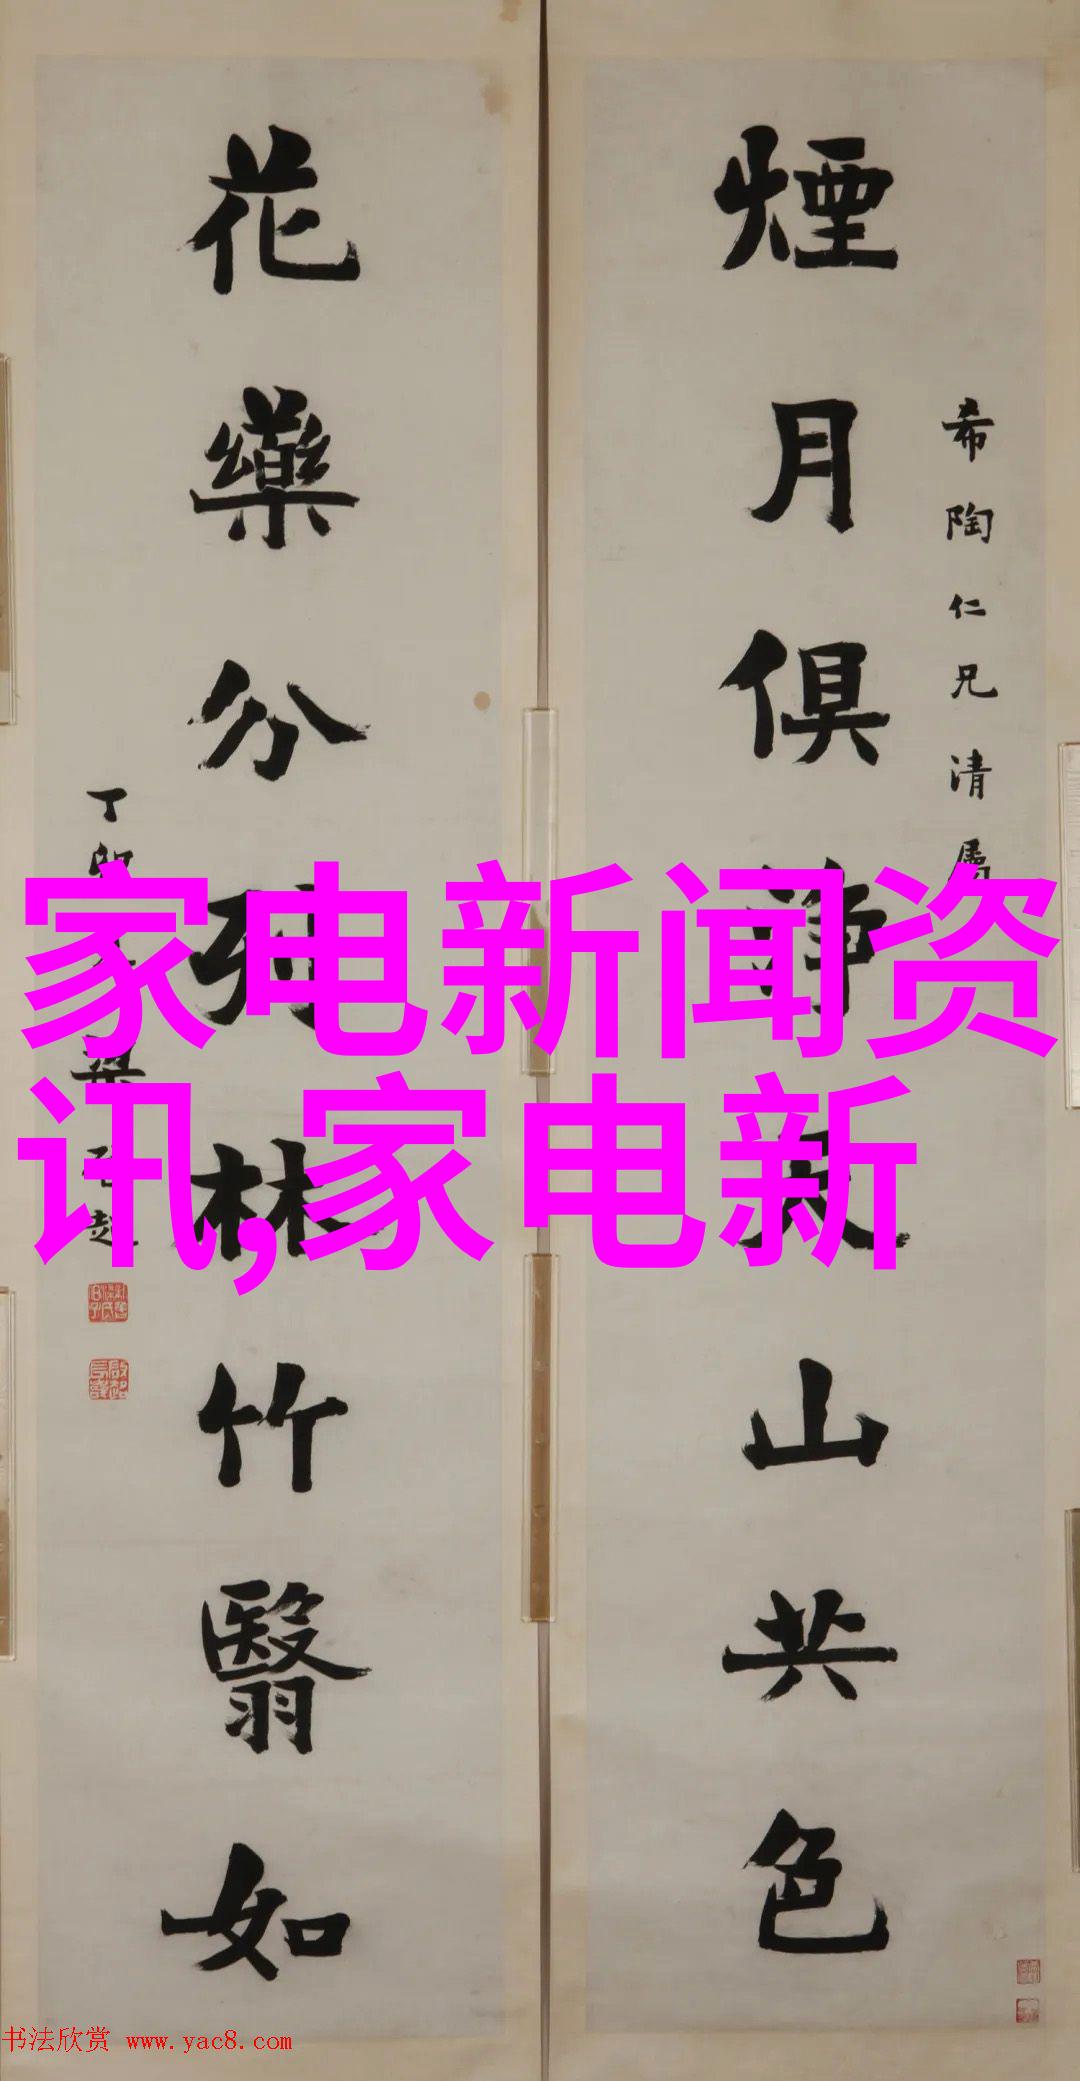 希陶仁兄清屬
煙月俱淨天山共色
花藥分列林竹翳如
丁卯 梁
家电新闻资
讯,家电新
书法欣赏 www.yac8.com